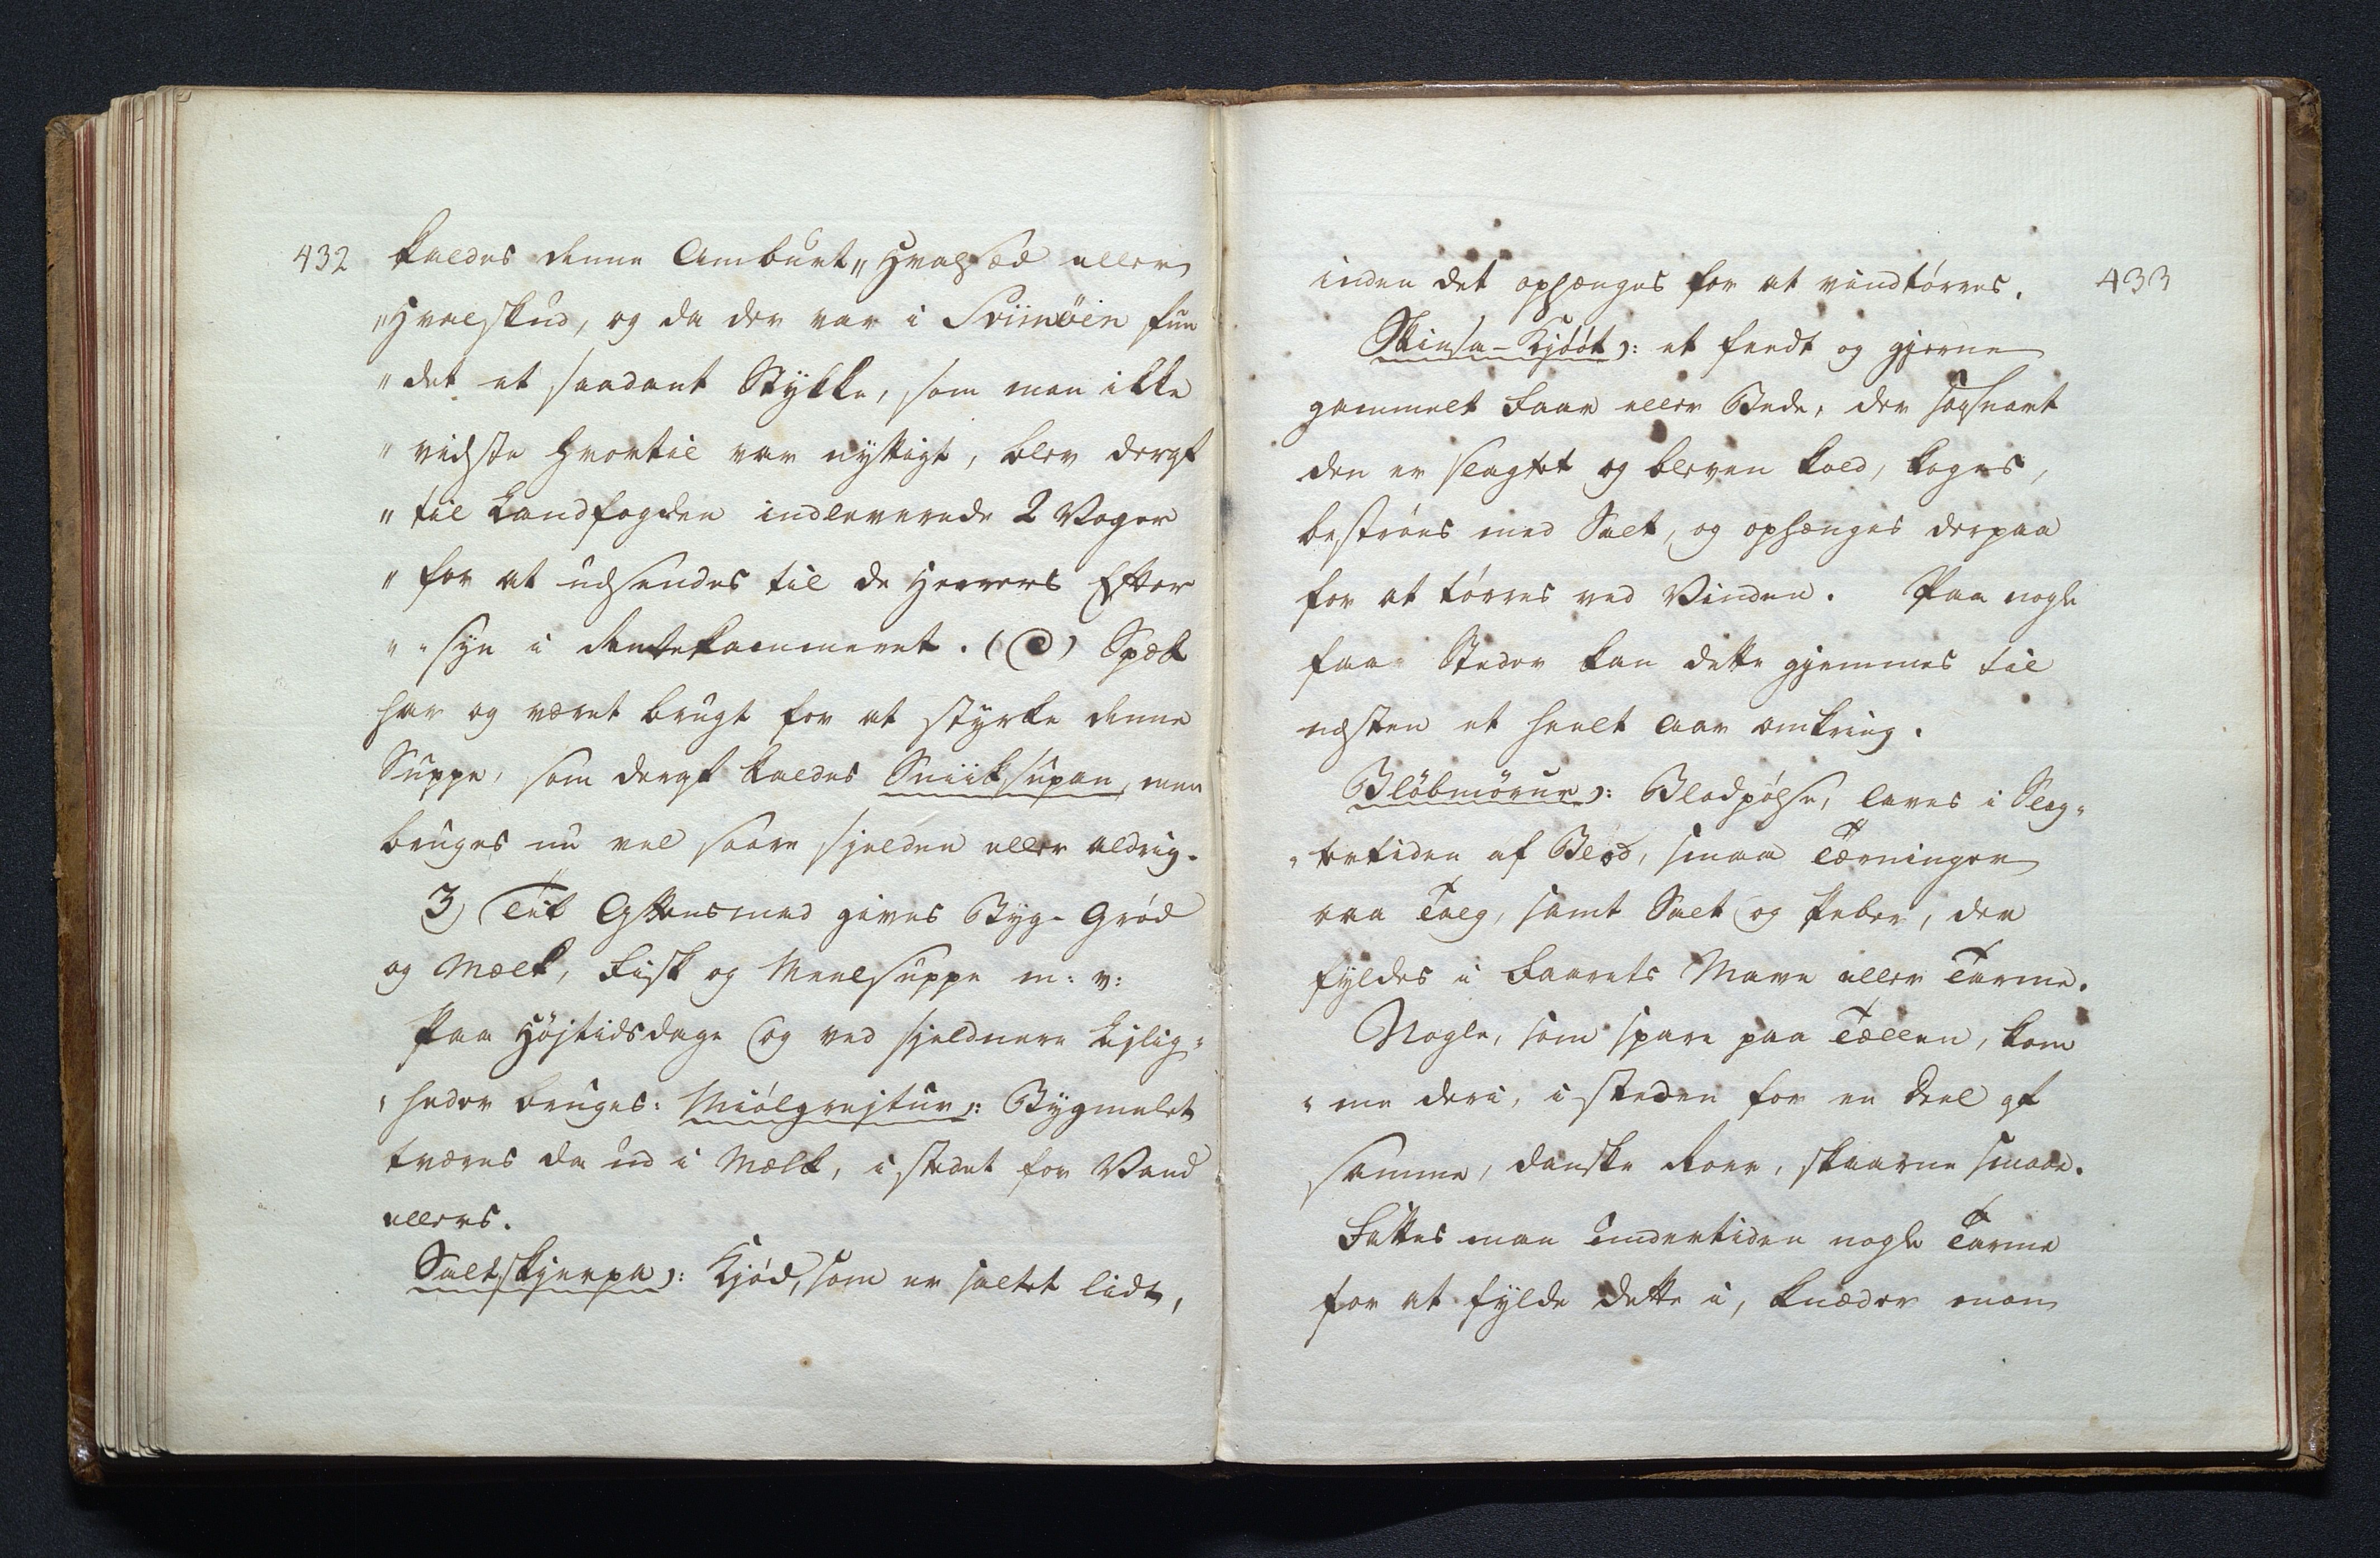 432
kaldes denne Amburt „Hvalsæd eller
„Hvalskud, og da der var i Svimöin fun
„det et saadant Stykke, som man ikke
„vidste hvortil var nyttigt, blev deraf
„til Landfogden indleverede 2 Voger
„for at udsendes til de Herrers Efter
„-syn i Rentekammeret. (@) Spæk
har og været brugt for at styrke denne
Suppe, som deraf kaldes Sniiksupan, men
bruges nu vel saare sjelden eller aldrig.
3) Til Aftensmad gives Byg-Grød
og Mælk, Fisk og Meelsuppe m: v:
Paa Højtidsdage og ved sjeldnere Lejlig-
-heder bruges: Miólgrejtur ɔ: Bygmelet
tværes da ud i Mælk, i stedet for Vand
ellers.
Saltskjerpa ɔ: Kjød, som er saltet lidt,
433
inden det ophænges for at vindtørres.
Skinsa-Kjóót ɔ: et feedt og gjerne
gammelt Faar eller Bede, der saasnart
den er slagtet og bleven kold, koges,
bestrøes med Salt, og ophænges derpaa
for at tørres ved Vinden. Paa nogle
faa Steder kan dette gjemmes til
næsten et heelt Aar omkring.
Blóbmörur ɔ: Blodpølse, laves i Slag-
-tetiden af Blod, smaa Tærninger
raa Talg, samt Salt og Peber, der
fyldes i Faarets Mave eller Tarme.
Nogle, som spare paa Tællen, kom
-me deri, i steden for en Deel af
samme, danske Roer, skaarne smaae.
Fattes man undertiden nogle Tarme
for at fylde dette i, knæder man